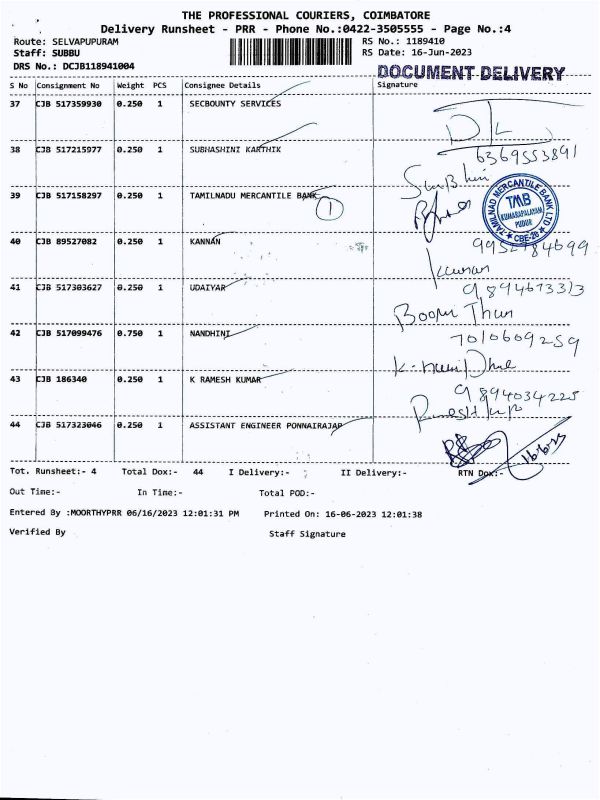 THE PROFESSIONAL COURIERS, COIMBATORE
Delivery Runsheet - PRR - Phone No.:0422-3505555 - Page No.:4
Route: SELVAPUPURAM RS No.: 1189410
Staff: SUBBU RS Date: 16-Jun-2023
DRS No.: DCJB118941004 DOCUMENT DELIVERY
S No Consignment No Weight PCS Consignee Details Signature
37 CJB 517359930 0.250 1 SECBOUNTY SERVICES
6369553891
38 CJB 517215977 0.250 1 SUBHASHINI KARTHIK
39 CJB 517158297 0.250 1 TAMILNADU MERCANTILE BANK
1
TAMILNAD MERCANTILE BANK LTD
TMB
KUMARAPALAYAM
PUDUR
CBE-26
40 CJB 89527082 0.250 1 KANNAN
41 CJB 517303627 0.250 1 UDAIYAR
42 CJB 517099476 0.750 1 NANDHINI
7010609259
43 CJB 186340 0.250 1 K RAMESH KUMAR
9894034225
44 CJB 517323046 0.250 1 ASSISTANT ENGINEER PONNAIRAJAP
16-6-23
Tot. Runsheet:- 4 Total Dox:- 44 I Delivery:- II Delivery:- RTN Dox:-
Out Time:- In Time:- Total POD:-
Entered By :MOORTHYPRR 06/16/2023 12:01:31 PM Printed On: 16-06-2023 12:01:38
Verified By Staff Signature